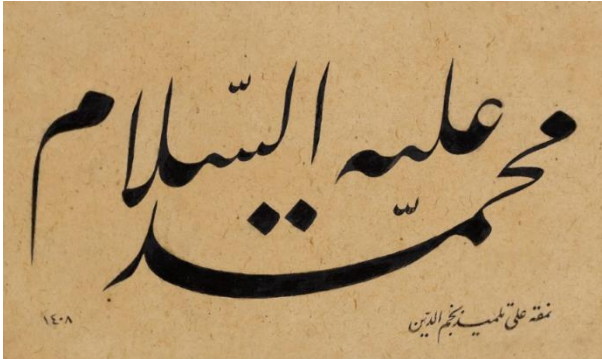 محمّد عليه السّلام
نمقه علي تلميذ نجم الدين
١٤٠٨